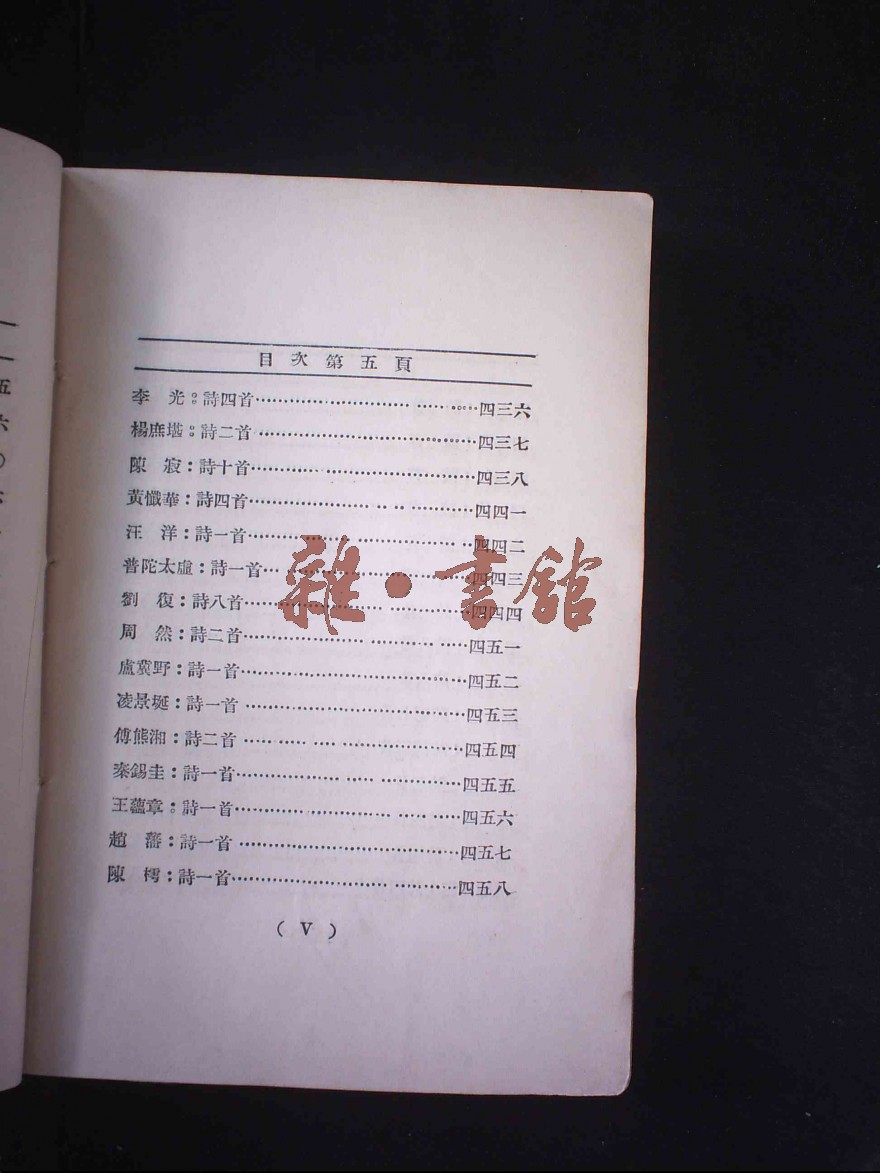 目次第五頁
李　光：詩四首……四三六
楊庶堪：詩二首……四三七
陳　寂：詩十首……四三八
黃懺華：詩四首……四四一
汪　洋：詩一首……四四二
普陀太虛：詩一首……四四三
劉　復：詩八首……四四四
周　然：詩二首……四五一
盧冀野：詩一首……四五二
凌景埏：詩一首……四五三
傅熊湘：詩二首……四五四
秦錫圭：詩一首……四五五
王蘊章：詩一首……四五六
趙　藩：詩一首……四五七
陳　樗：詩一首……四五八
（V）
雜・書館
五六〇